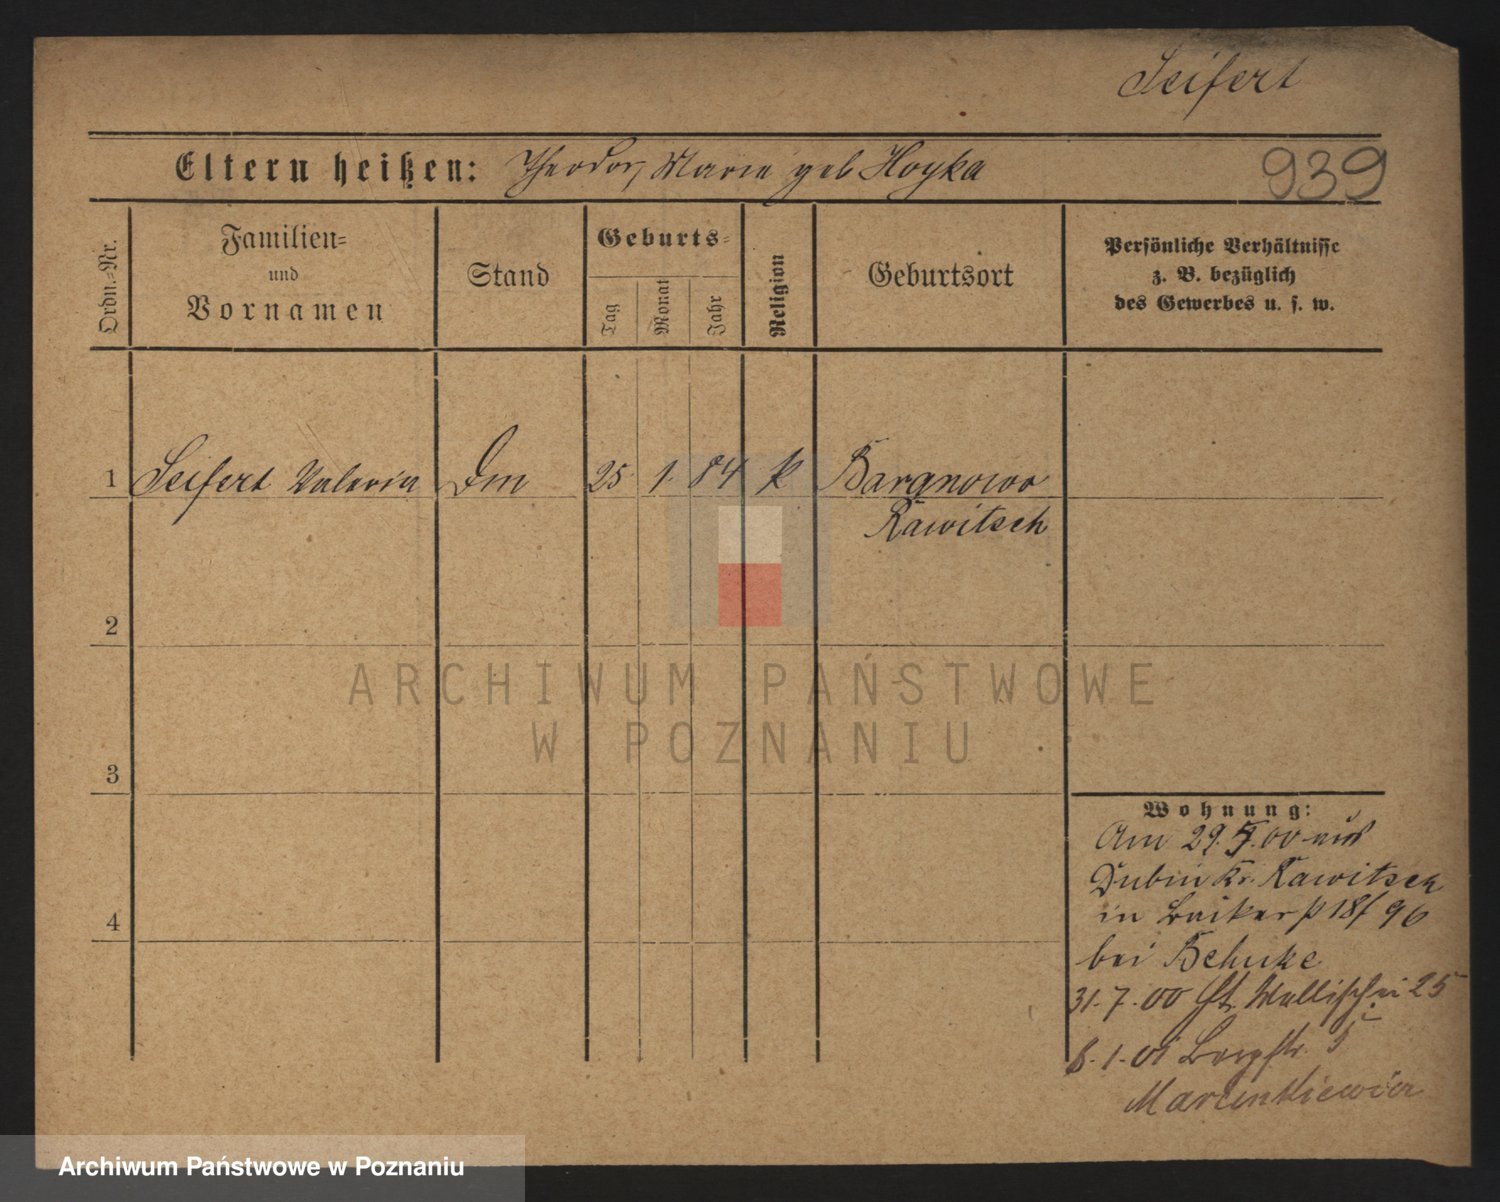 Seifert
Eltern heißen: Theodor, Marie geb Hoyka
939
Ordn.-Nr.
Familien-
und
Vornamen
Stand
Geburts-
Tag
Monat
Jahr
Religion
Geburtsort
Persönliche Verhältnisse
z. B. bezüglich
des Gewerbes u. s. w.
1 Seifert Valeria Dm 25. 1. 84 k Baranowo
Rawitsch
2
3
4
ARCHIWUM PAŃSTWOWE
W POZNANIU
Wohnung:
Am 29. 00 aus
Dubin Kr. Rawitsch
in 18/96
bei Behnke
31.7.00 Wallischei 25
8.1.01 Bergstr. 5
Marcinkiewicz
Archiwum Państwowe w Poznaniu